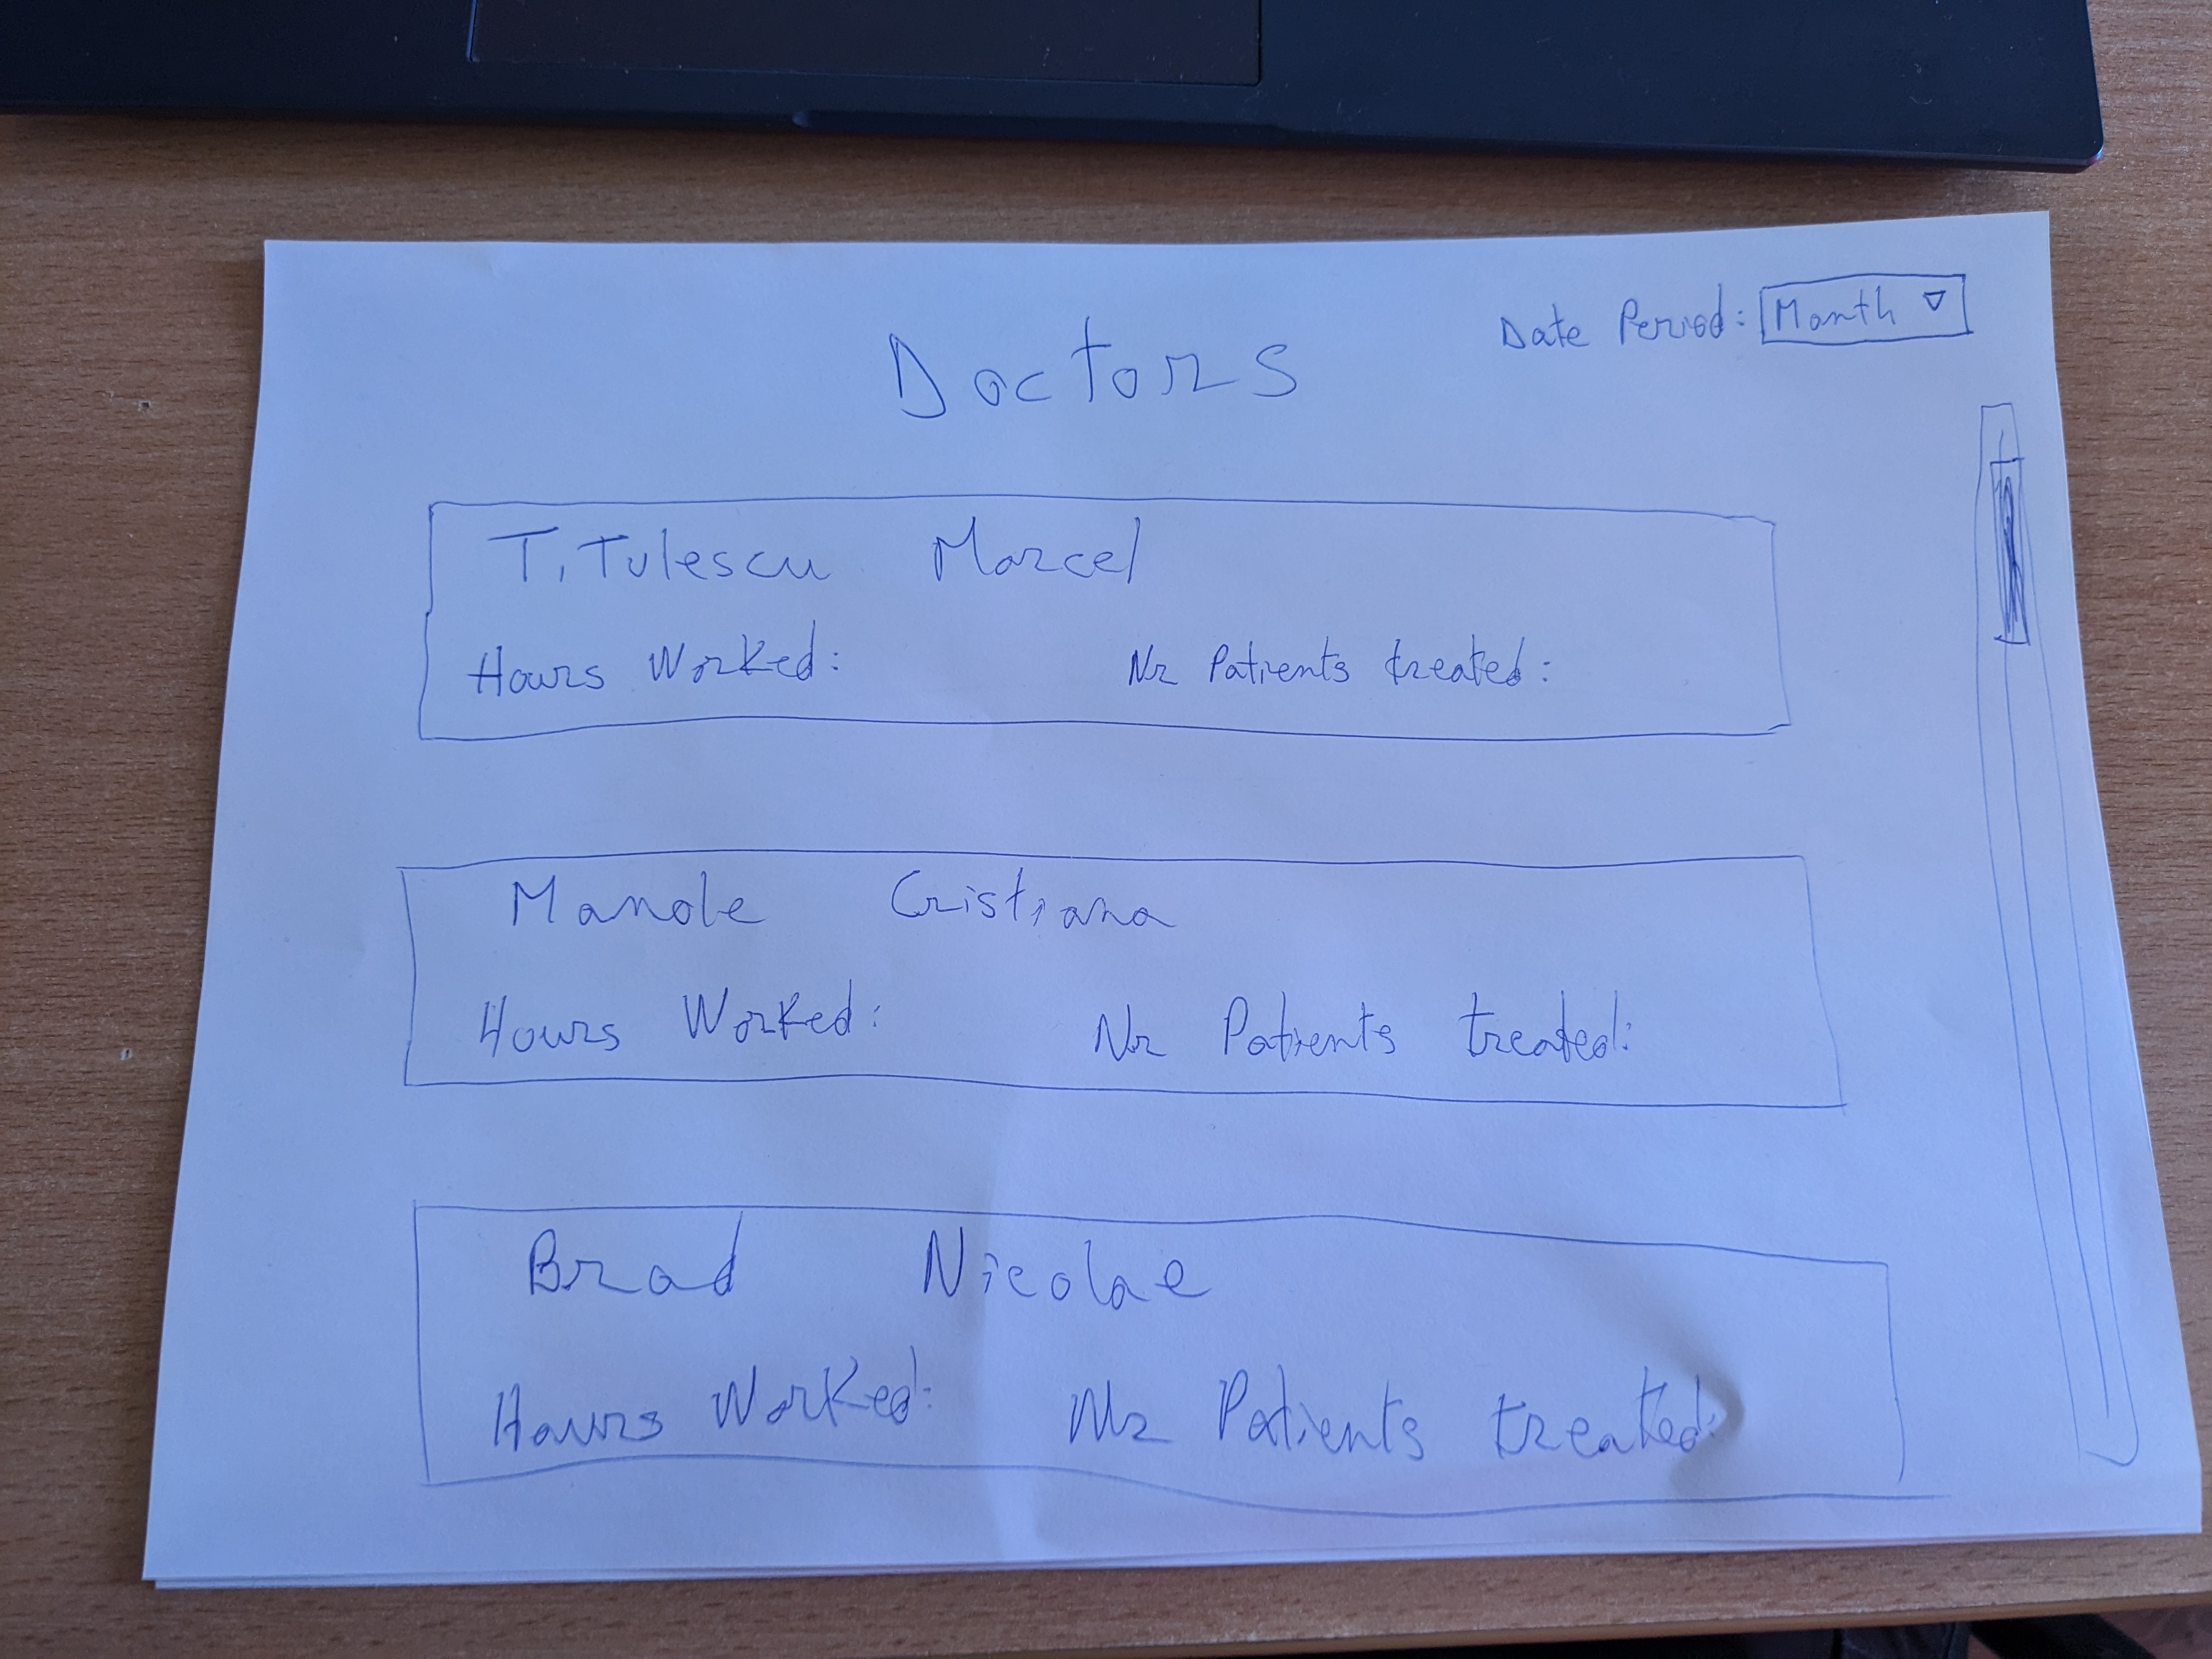 Date Period: Month
Doctors
Titulescu Marcel
Hours Worked: Nr Patients treated:
Manole Cristiana
Hours Worked: Nr Patients treated:
Brad Nicolae
Hours Worked: Nr Patients treated: